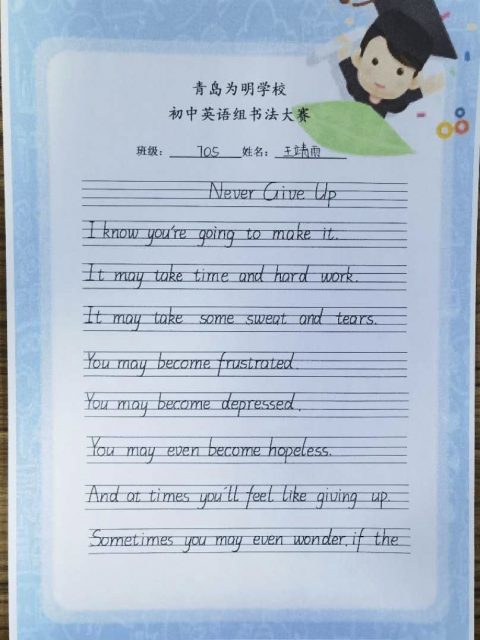 青岛为明学校
初中英语组书法大赛
班级： 705 姓名： 王靖雨
Never Give Up
I know you're going to make it.
It may take time and hard work.
It may take some sweat and tears.
You may become frustrated.
You may become depressed.
You may even become hopeless.
And at times you'll feel like giving up.
Sometimes you may even wonder, if the